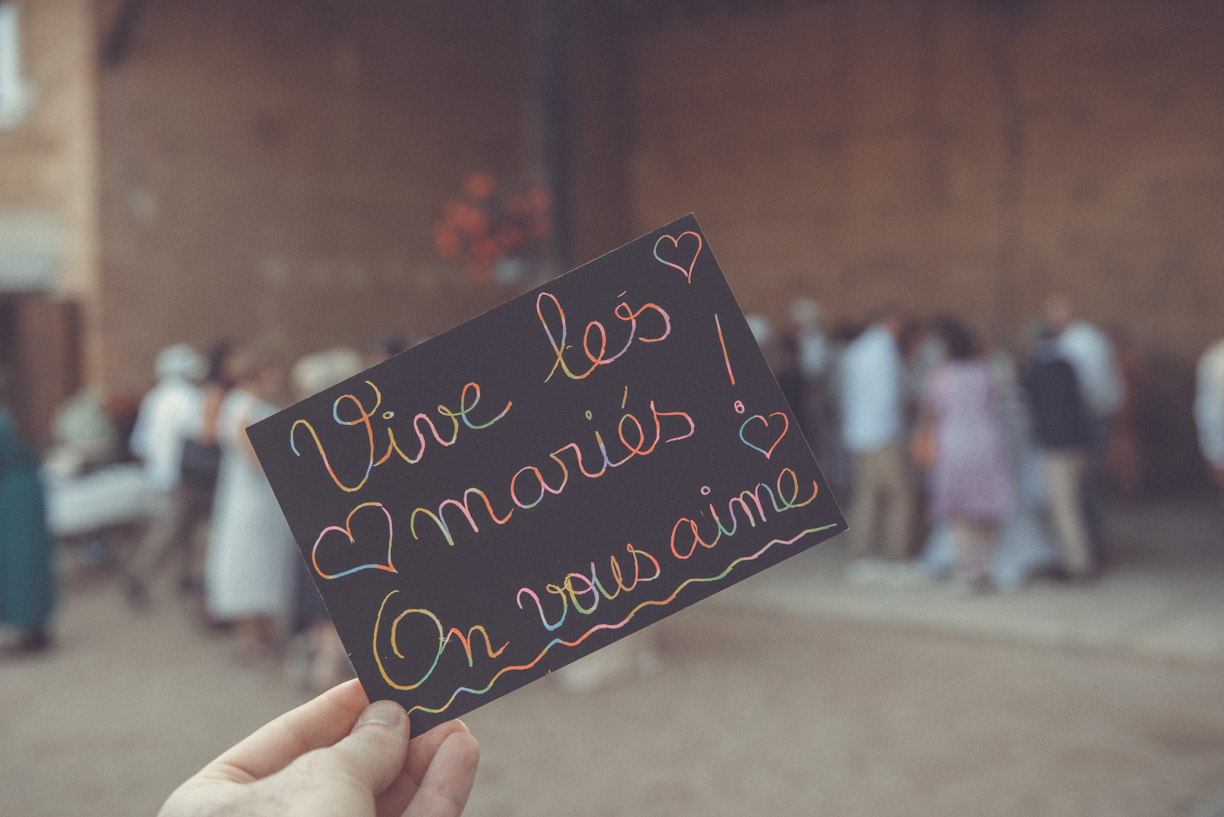 Vive les
mariés !
On vous aime